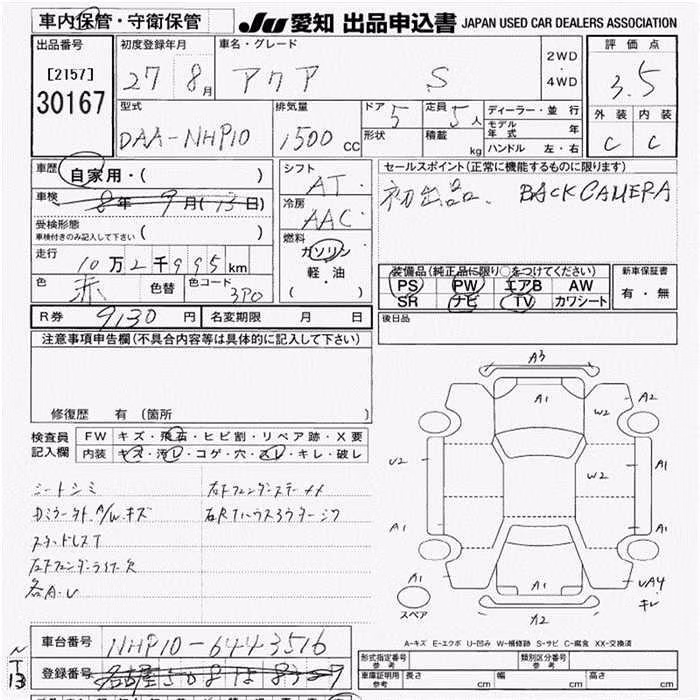 車内保管・守衛保管 JU 愛知 出品申込書 JAPAN USED CAR DEALERS ASSOCIATION
出品番号 初度登録年月 車名・グレード 2WD 4WD 評価点
[2157] 30167 27 8月 アクア S 3.5
型式 排気量 ドア 5 定員 5人 ディーラー・並行 外装 内装
DAA-NHP10 1500cc 形状 積載 kg モデル年式 年 C C
ハンドル 左・右
車歴 自家用・( ) シフト AT セールスポイント(正常に機能するものに限ります)
車検 8年 9月(13日) 冷房 AAC 初出品. BACK CAMERA
受検形態 車検付きのみ記入して下さい ( ) 燃料 ガソリン 軽・油 ( )
走行 10万2千995km
装備品(純正品に限り○をつけてください) 新車保証書
色 赤 色替 色コード 3P0 PS PW エアB AW 有・無
SR ナビ TV カワシート
R券 9130円 名変期限 月 日 後日品
注意事項申告欄(不具合内容等は具体的に記入して下さい)
修復歴 有(箇所 )
検査員記入欄 FW キズ・飛石・ヒビ割・リペア跡・X要
内装 キズ・汚レ・コゲ・穴・スレ・キレ・破レ
シートシミ
スタッドレスT
各A.U
A3
A1 W2 A2
U2 W2 A1
A1 A1
A1 A1 UA4
キレ
スペア A2
A-キズ E-エクボ U-凹み W-補修跡 S-サビ C-腐食 XX-交換済
車台番号 NHP10-6443516
登録番号
形式指定番号 参考 類別区分番号 参考
車庫証明用 参考 長さ 幅 高さ